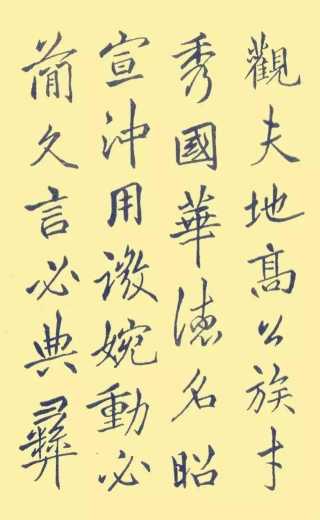 觀夫地高公族才
秀國華德名昭
宣沖用譤婉動必
簡久言必典彝